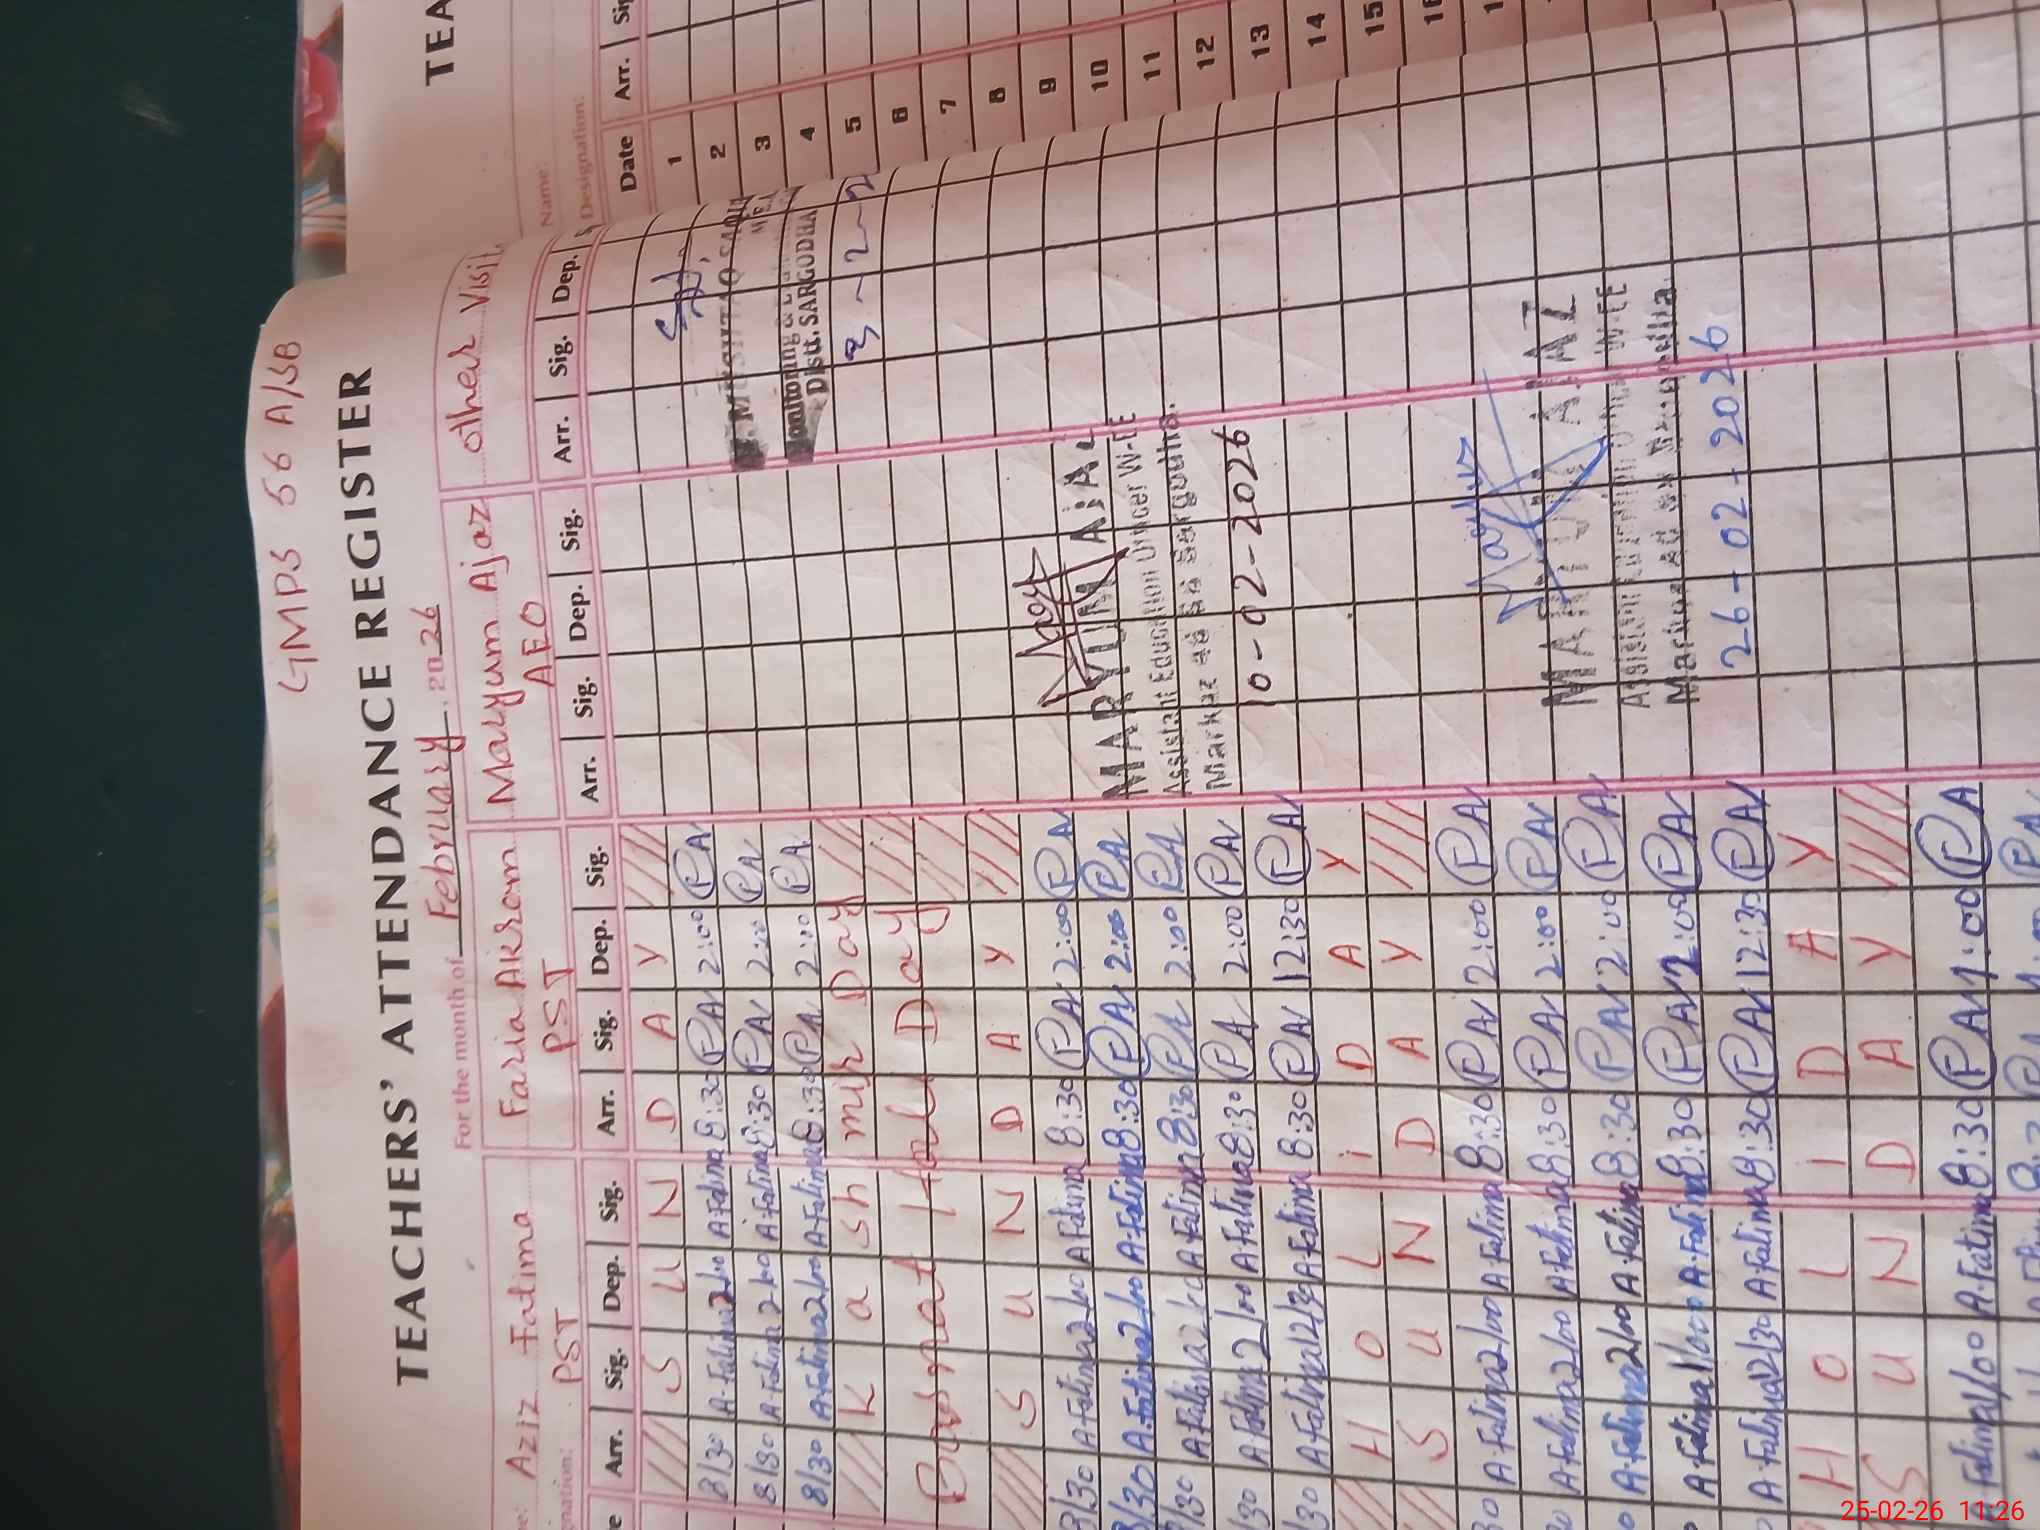 GMPS 56 A/SB
TEACHERS' ATTENDANCE REGISTER
For the month of February 2026
Aziz Fatima Faria Akram Maryum Ajaz other Visit
PST PST AEO
Arr. Sig. Dep. Sig. Arr. Sig. Dep. Sig. Arr. Sig. Dep. Sig. Arr. Sig. Dep.
S U N D A Y
8/30 A.Fatima 2/00 A.Fatima 8:30 PA 2:00 PA
8/30 A.Fatima 2/00 A.Fatima 8:30 PA 2:00 PA
8/30 A.Fatima 2/00 A.Fatima 8:30 PA 2:00 PA
Kashmir Day
Basnat Holi Day
S U N D A Y
8/30 A.Fatima 2/00 A.Fatima 8:30 PA 2:00 PA
8/30 A.Fatima 2/00 A.Fatima 8:30 PA 2:00 PA
8/30 A.Fatima 2/00 A.Fatima 8:30 PA 2:00 PA
/30 A.Fatima 2/00 A.Fatima 8:30 PA 2:00 PA
/30 A.Fatima 12/30 A.Fatima 8:30 PA 12:30 PA
H O L i D A Y
S U N D A Y
30 A.Fatima 2/00 A.Fatima 8:30 PA 2:00 PA
A.Fatima 2/00 A.Fatima 8:30 PA 2:00 PA
A.Fatima 2/00 A.Fatima 8:30 PA 2:00 PA
A.Fatima 1/00 A.Fatima 8:30 PA 2:00 PA
A.Fatima 12/30 A.Fatima 8:30 PA 12:30 PA
H O L I D A Y
S U N D A Y
Fatima 1/00 A.Fatima 8:30 PA 1:00 PA
MUSHTAQ
Monitoring &
Distt. SARGODHA
3-2-2
MARYUM AJAZ
Assistant Education Officer W-EE
Markaz Sargodha.
10-02-2026
MARYUM AJAZ
Assistant Education Officer W-EE
Markaz
26-02-2026
TEA
Name:
Designation:
Date Arr.
1
2
3
4
5
6
7
8
9
10
11
12
13
14
15
16
25-02-26 11:26